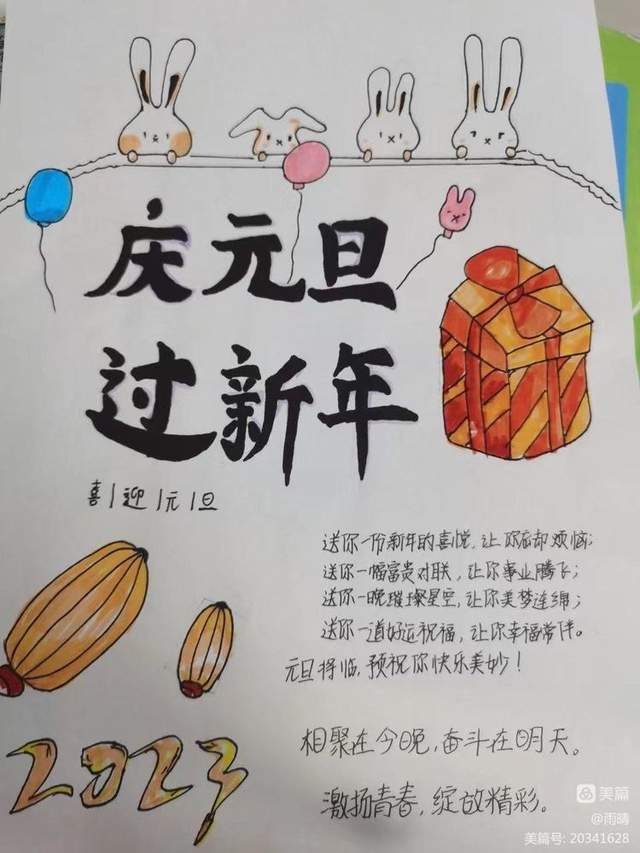 庆元旦
过新年
喜|迎|元|旦
送你一份新年的喜悦,让你忘却烦恼;
送你一幅富贵对联,让你事业腾飞;
送你一晚璀璨星空,让你美梦连绵;
送你一道好运祝福,让你幸福常伴。
元旦将临,预祝你快乐美妙!
2023
相聚在今晚,奋斗在明天。
激扬青春,绽放精彩。
美篇
@雨晴
美篇号: 20341628